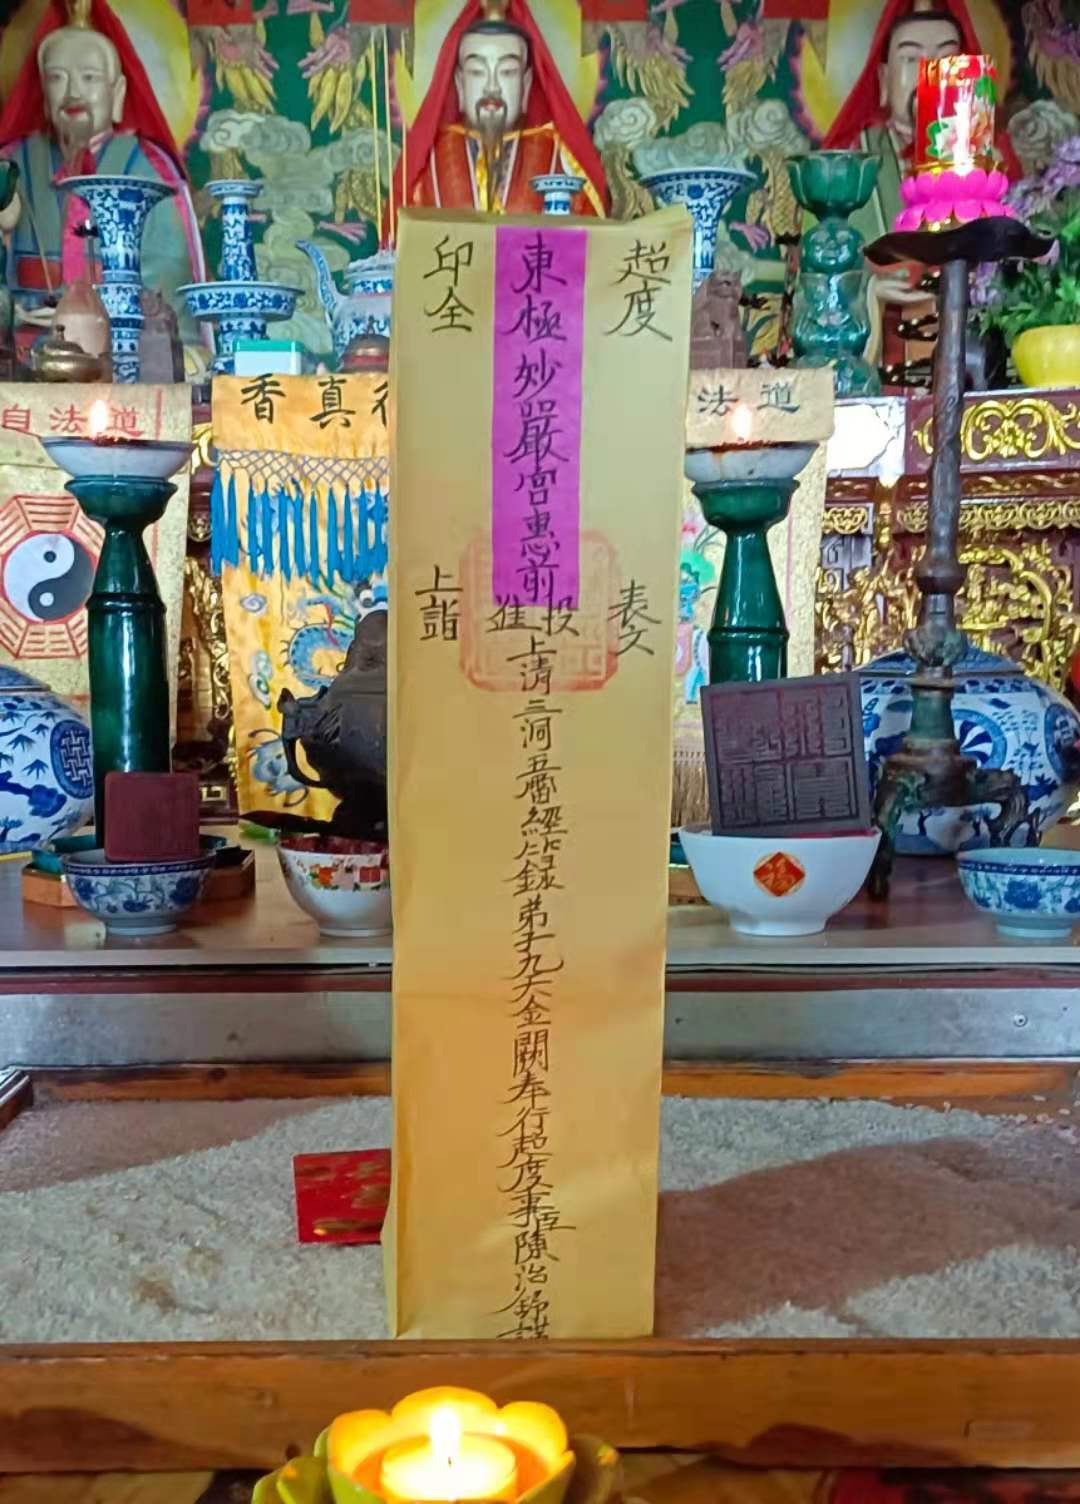 超度
表文
東極妙嚴宮惠前
投進
上清三洞五雷經籙弟子九天金闕奉行超度事臣陳治錦謹
印全
上詣
道法
香真行
道法自
福